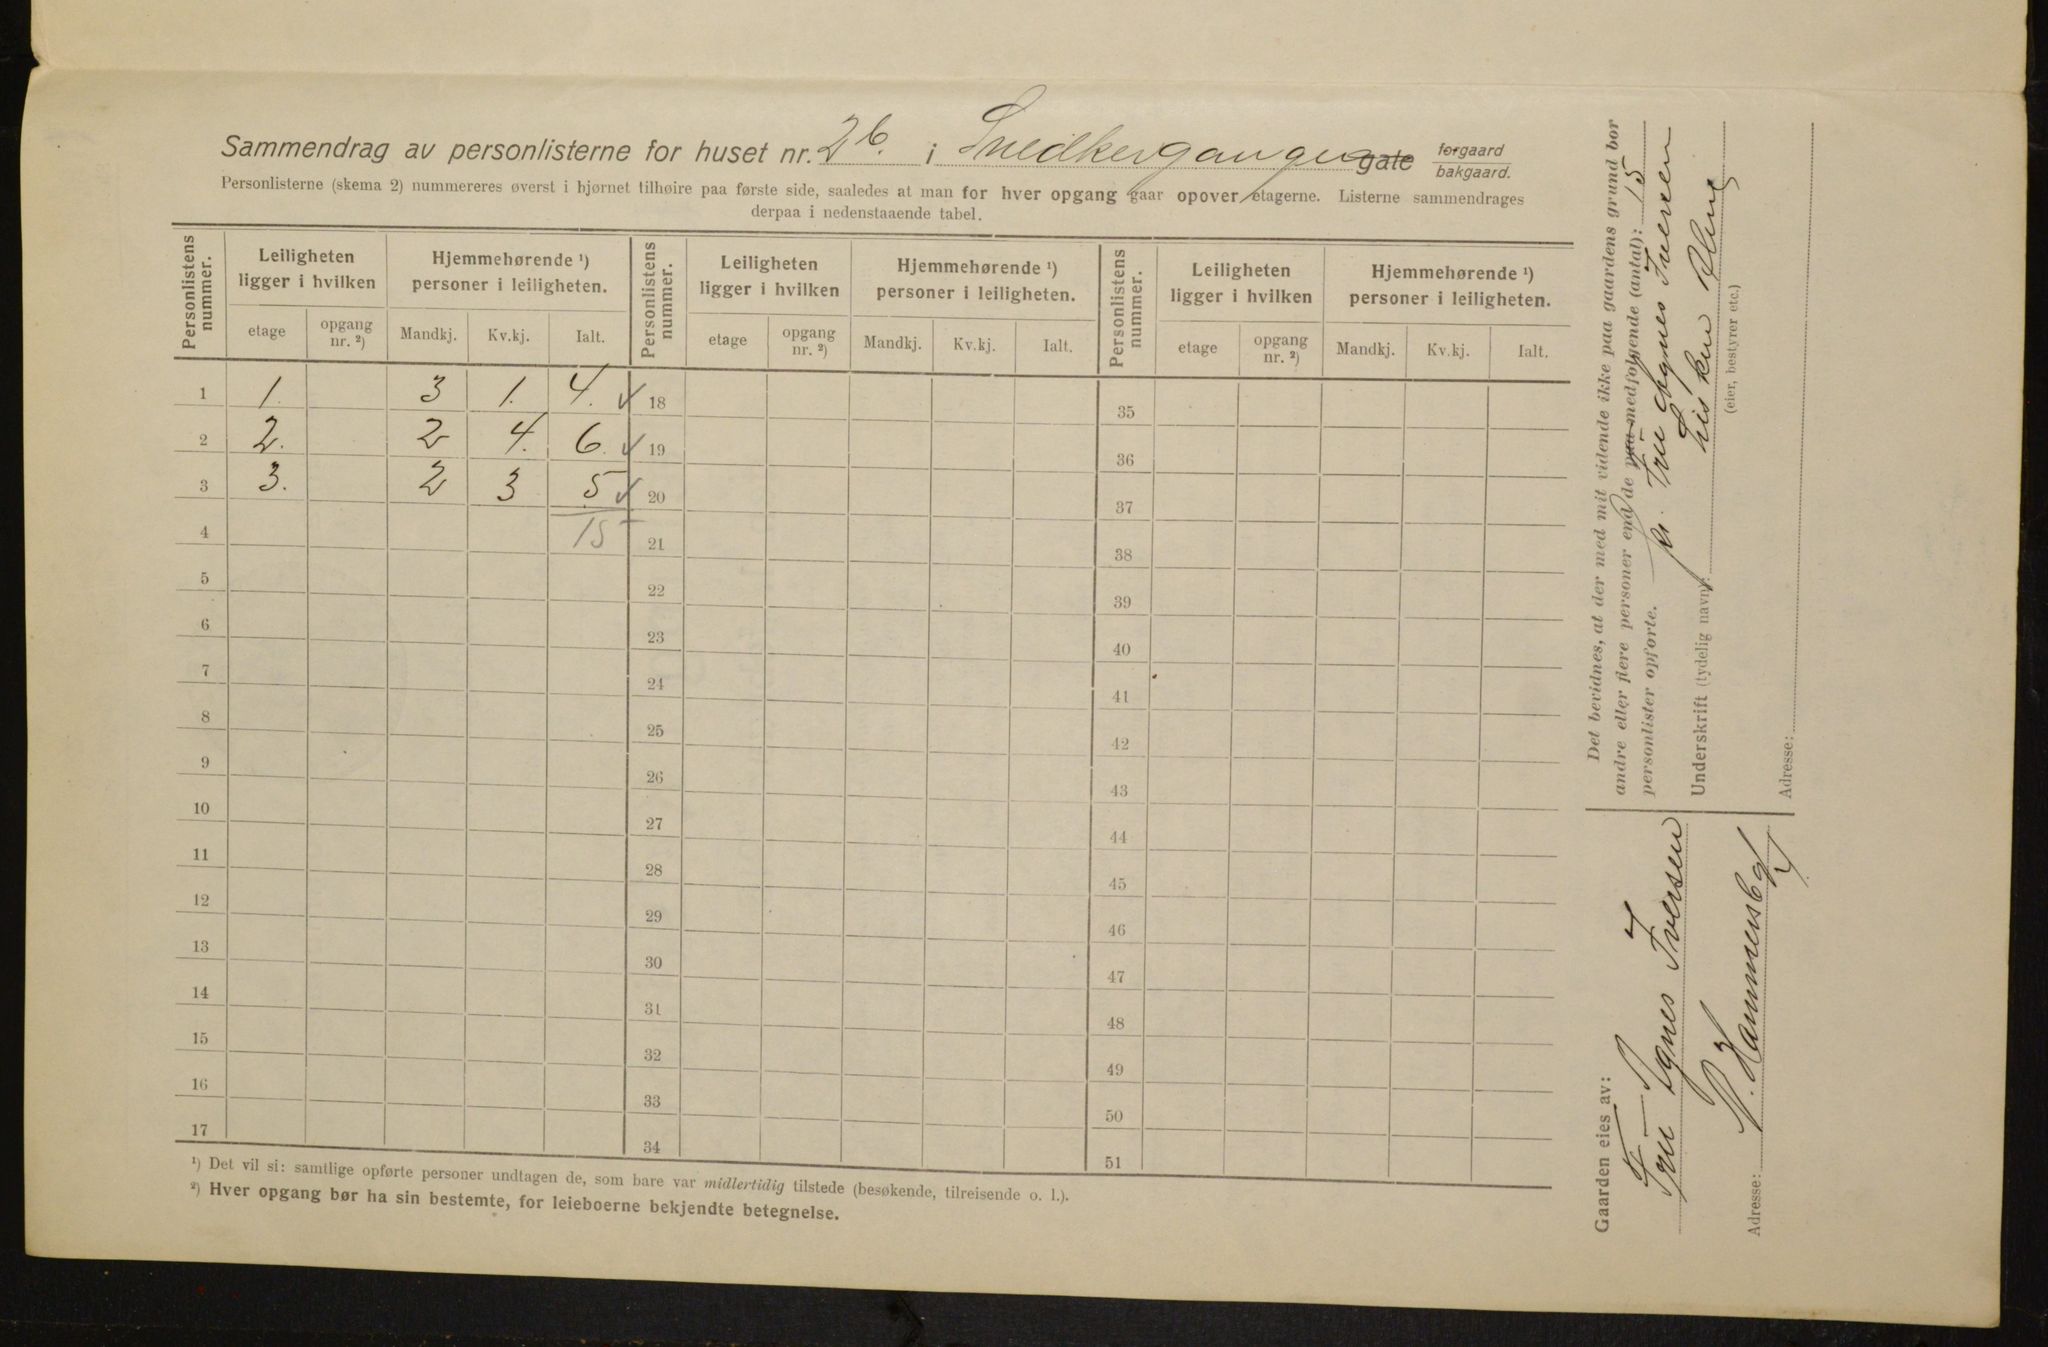 Sammendrag av personlisterne for huset nr. 2b. i Snedkergangen gate forgaard bakgaard.
Personlisterne (skema 2) nummereres øverst i hjørnet tilhøire paa første side, saaledes at man for hver opgang gaar opover etagerne. Listerne sammendrages
derpaa i nedenstaaende tabel.
Personlistens nummer. Leiligheten ligger i hvilken Hjemmehørende ¹) personer i leiligheten. Personlistens nummer. Leiligheten ligger i hvilken Hjemmehørende ¹) personer i leiligheten. Personlistens nummer. Leiligheten ligger i hvilken Hjemmehørende ¹) personer i leiligheten.
etage opgang nr. ²) Mandkj. Kv.kj. Ialt. etage opgang nr. ²) Mandkj. Kv.kj. Ialt. etage opgang nr. ²) Mandkj. Kv.kj. Ialt.
1 1. 3 1. 4. ✓ 18 35
2 2. 2 4. 6. ✓ 19 36
3 3. 2 3 5 ✓ 20 37
4 15 21 38
5 22 39
6 23 40
7 24 41
8 25 42
9 26 43
10 27 44
11 28 45
12 29 46
13 30 47
14 31 48
15 32 49
16 33 50
17 34 51
¹) Det vil si: samtlige opførte personer undtagen de, som bare var midlertidig tilstede (besøkende, tilreisende o. l.).
²) Hver opgang bør ha sin bestemte, for leieboerne bekjendte betegnelse.
Det bevidnes, at der med mit vidende ikke paa gaardens grund bor
andre eller flere personer end de paa medfølgende (antal): 15
personlister opførte.
Fru Agnes Iversen
Underskrift (tydelig navn):
(eier, bestyrer etc.)
Adresse:
Gaarden eies av:
Fru Agnes Iversen
Adresse: